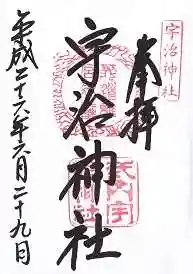 奉拝
宇治神社
宇治神社
平成二十六年六月二十九日